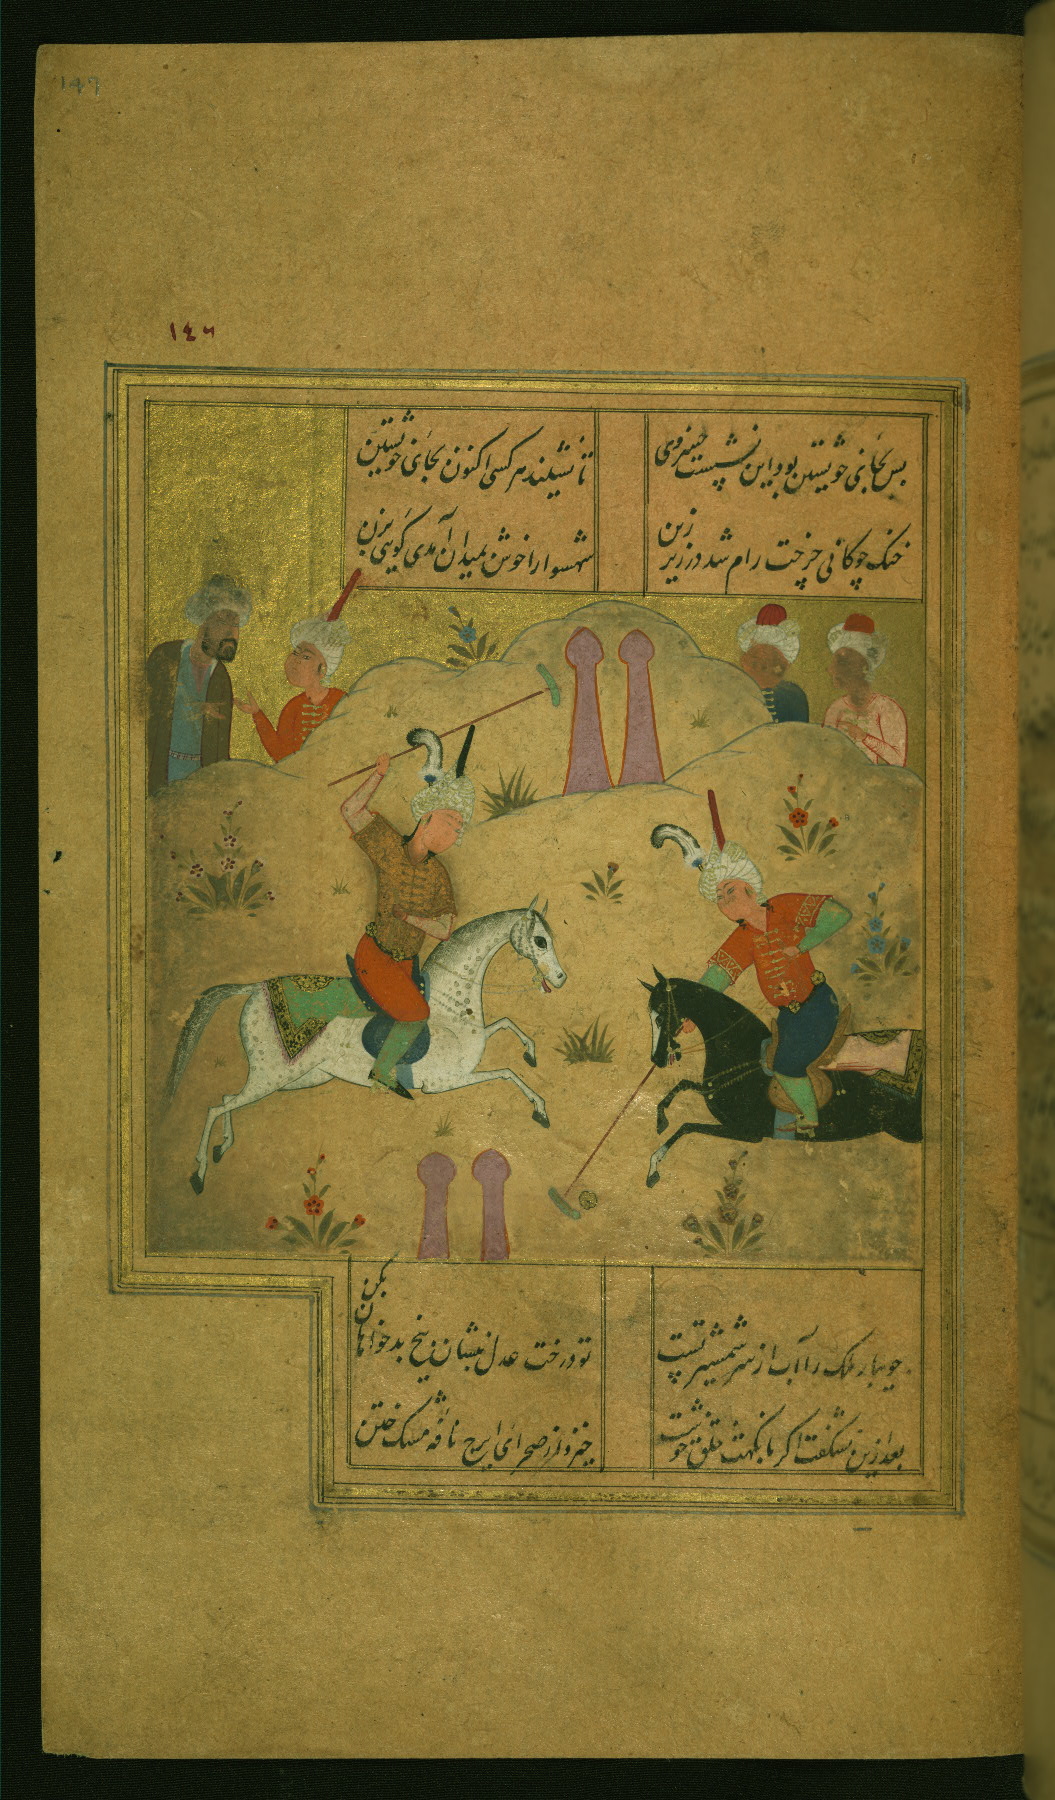 ۱۴۶
۱٤٦
بس بجای خویشتن بود این نشست خسروی
تا نشیند هر کسی اکنون بجای خویشتن
خنک چوکانی چرخت رام شد در زیر زین
شهسوارا خوش بمیدان آمدی کویی بزن
جویبار ملک را آب از سر شمشیر تست
تو درخت عدل بنشان بیخ بدخواهان بکن
بعد ازین نشکفت اکر با نکهت خلق خوشت
خیزد از صحرای ایرج نافه مشک ختن